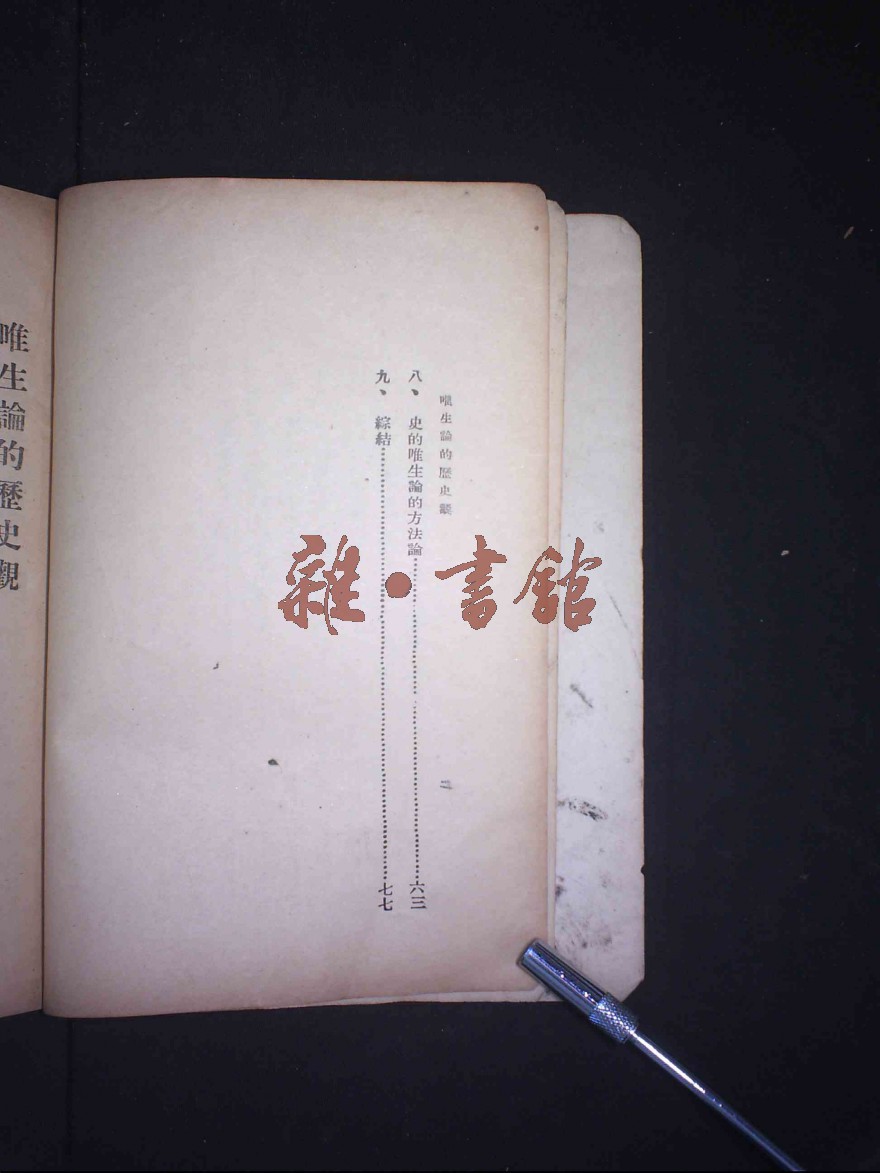 唯生論的歷史觀 二
八、史的唯生論的方法論……六三
九、綜結……七七
唯生論的歷史觀
雜・書館